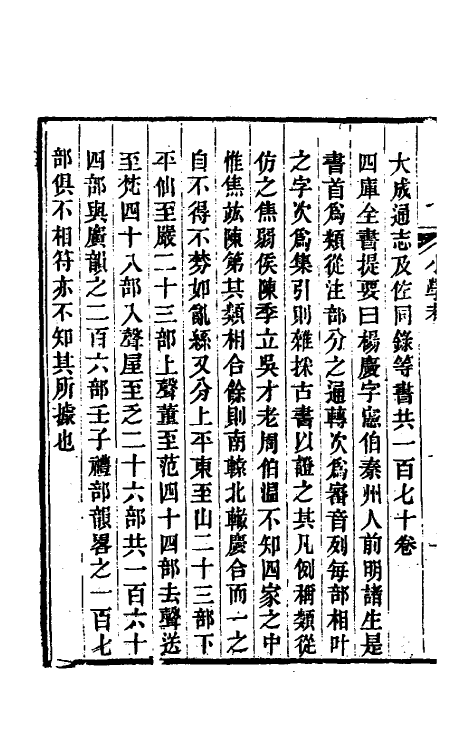 小學考
大成通志及佐同錄等書共一百七十卷
四庫全書提要曰楊慶字憲伯秦州人前明諸生是
書首爲類從注部分之通轉次爲審音列每部相叶
之字次爲集引則雜採古書以證之其凡例稱類從
仿之焦弱侯陳季立吳才老周伯溫不知四家之中
惟焦竑陳第其類相合餘則南轅北轍慶合而一之
自不得不棼如亂絲又分上平東至山二十三部下
平仙至嚴二十三部上聲董至范四十四部去聲送
至梵四十八部入聲屋至乏二十六部共一百六十
四部與廣韻之二百六部壬子禮部韻畧之一百七
部俱不相符亦不知其所據也